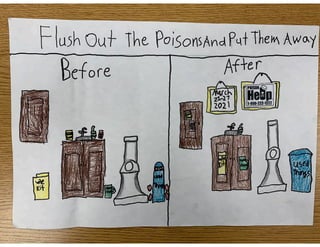 Flush Out The Poisons And Put Them Away
Before
After
March
2021
Help
used
Things